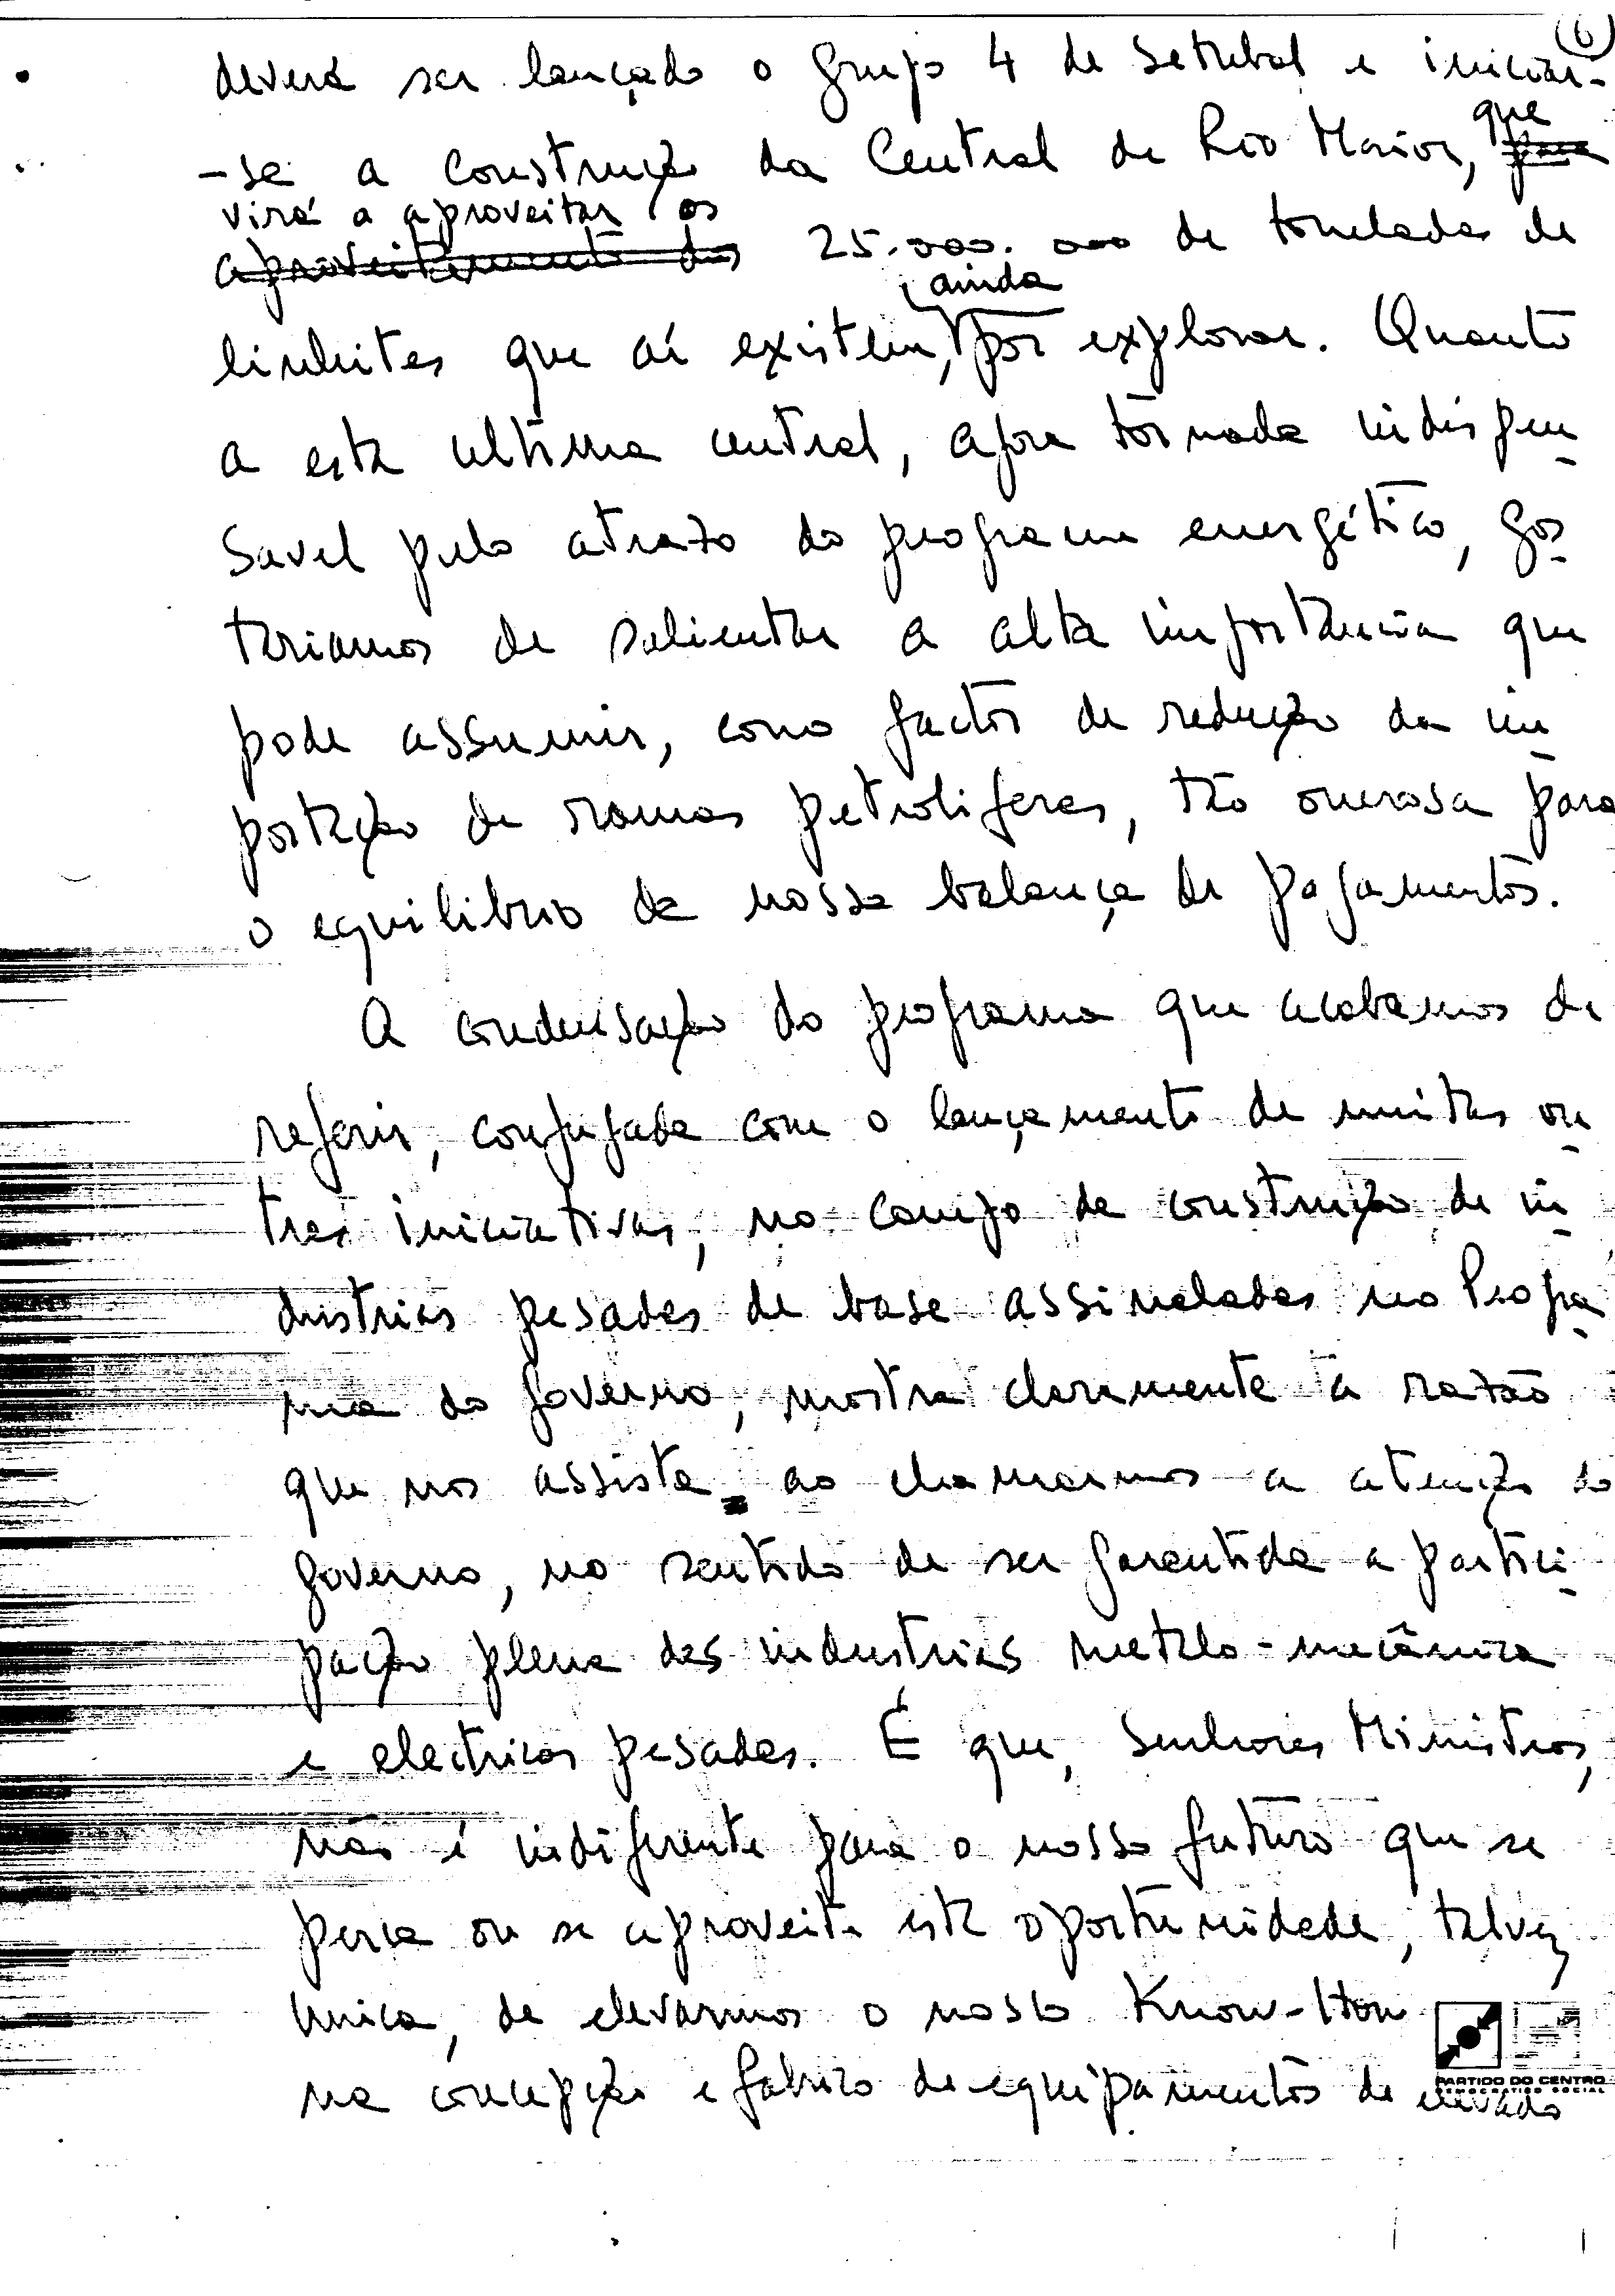 (6)
deverá ser lançado o grupo 4 de Setubal e iniciar-
-se a construção da Central de Rio Maior, que ~~para~~
virá a aproveitar os
~~aproveitamento dos~~ 25.000.000 de toneladas de
ainda
linhites que aí existem, por explorar. Quanto
a esta ultima central, agora tornada indispen
savel pelo atrazo do programa energético, gos
tariamos de salientar a alta importancia que
pode assumir, como factor de redução da im
portação de ramas petroliferas, tão onerosa para
o equilibrio da nossa balança de pagamentos.
A condensação do programa que acabamos de
referir, conjugada com o lançamento de muitas ou
tras iniciativas, no campo da construção de in
dustrias pesadas de base assinaladas no Progra
ma do Governo, mostra claramente a razão
que nos assiste ao chamarmos a atenção do
governo, no sentido de ser garantida a partici
pação plena das industrias metalo-mecânica
e electricas pesadas. É que, Senhores Ministros,
não é indiferente para o nosso futuro que se
perca ou se aproveite esta oportunidade, talvez
unica, de elevarmos o nosso Know-How
na concepção e fabrico de equipamentos de elevado
PARTIDO DO CENTRO
DEMOCRATICO SOCIAL